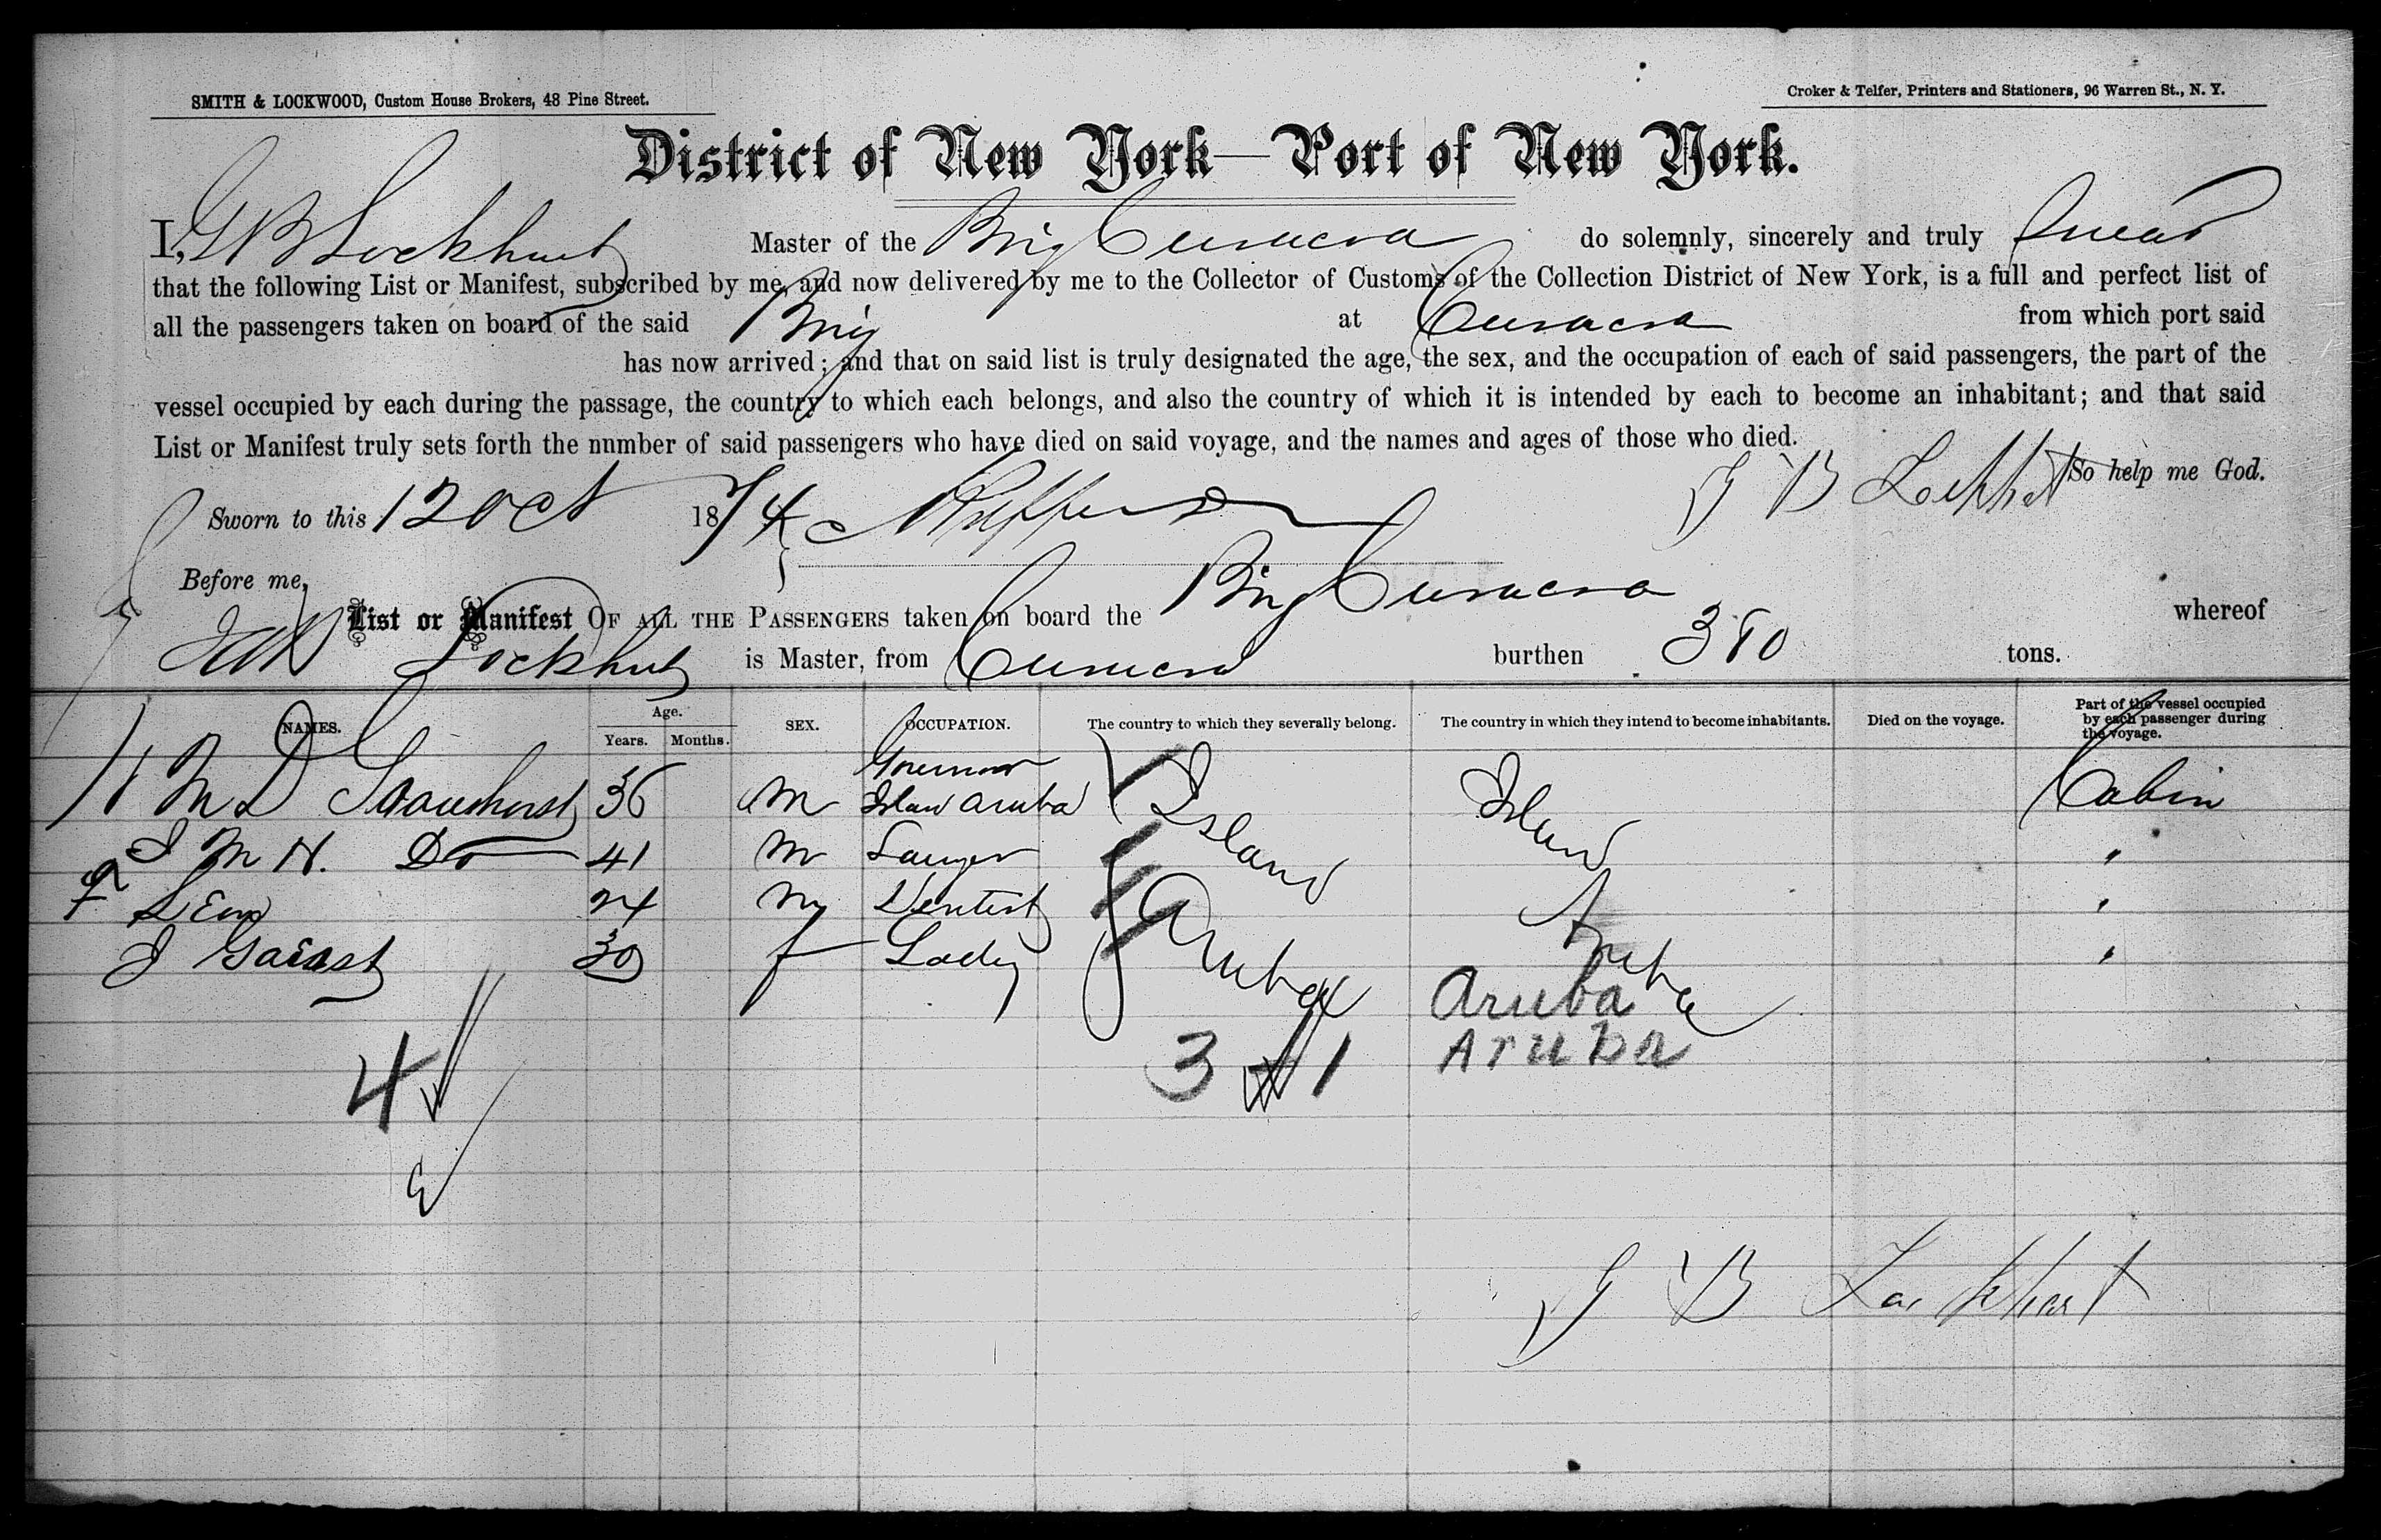 SMITH & LOCKWOOD, Custom House Brokers, 48 Pine Street.
Croker & Telfer, Printers and Stationers, 96 Warren St., N. Y.
District of New York—Port of New York.
I, G B Lockhart Master of the Brig Curacoa do solemnly, sincerely and truly swear
that the following List or Manifest, subscribed by me, and now delivered by me to the Collector of Customs of the Collection District of New York, is a full and perfect list of
all the passengers taken on board of the said Brig at Curacoa from which port said
has now arrived; and that on said list is truly designated the age, the sex, and the occupation of each of said passengers, the part of the
vessel occupied by each during the passage, the country to which each belongs, and also the country of which it is intended by each to become an inhabitant; and that said
List or Manifest truly sets forth the nnmber of said passengers who have died on said voyage, and the names and ages of those who died.
So help me God.
Sworn to this 12 Oct 1874 G B Lockhart
Before me,
List or Manifest OF ALL THE PASSENGERS taken on board the Brig Curacoa whereof
Lockhart is Master, from Curacoa burthen 380 tons.
NAMES. Age. Years. Months. SEX. OCCUPATION. The country to which they severally belong. The country in which they intend to become inhabitants. Died on the voyage. Part of the vessel occupied by each passenger during the voyage.
Governor
36 M Islan Aruba Island Islan Cabin
J M H. Do 41 M "
24 M Dentist Aruba Aruba "
J 30 f Lady "
Aruba
Aruba
4 3 1
G B Lockhart